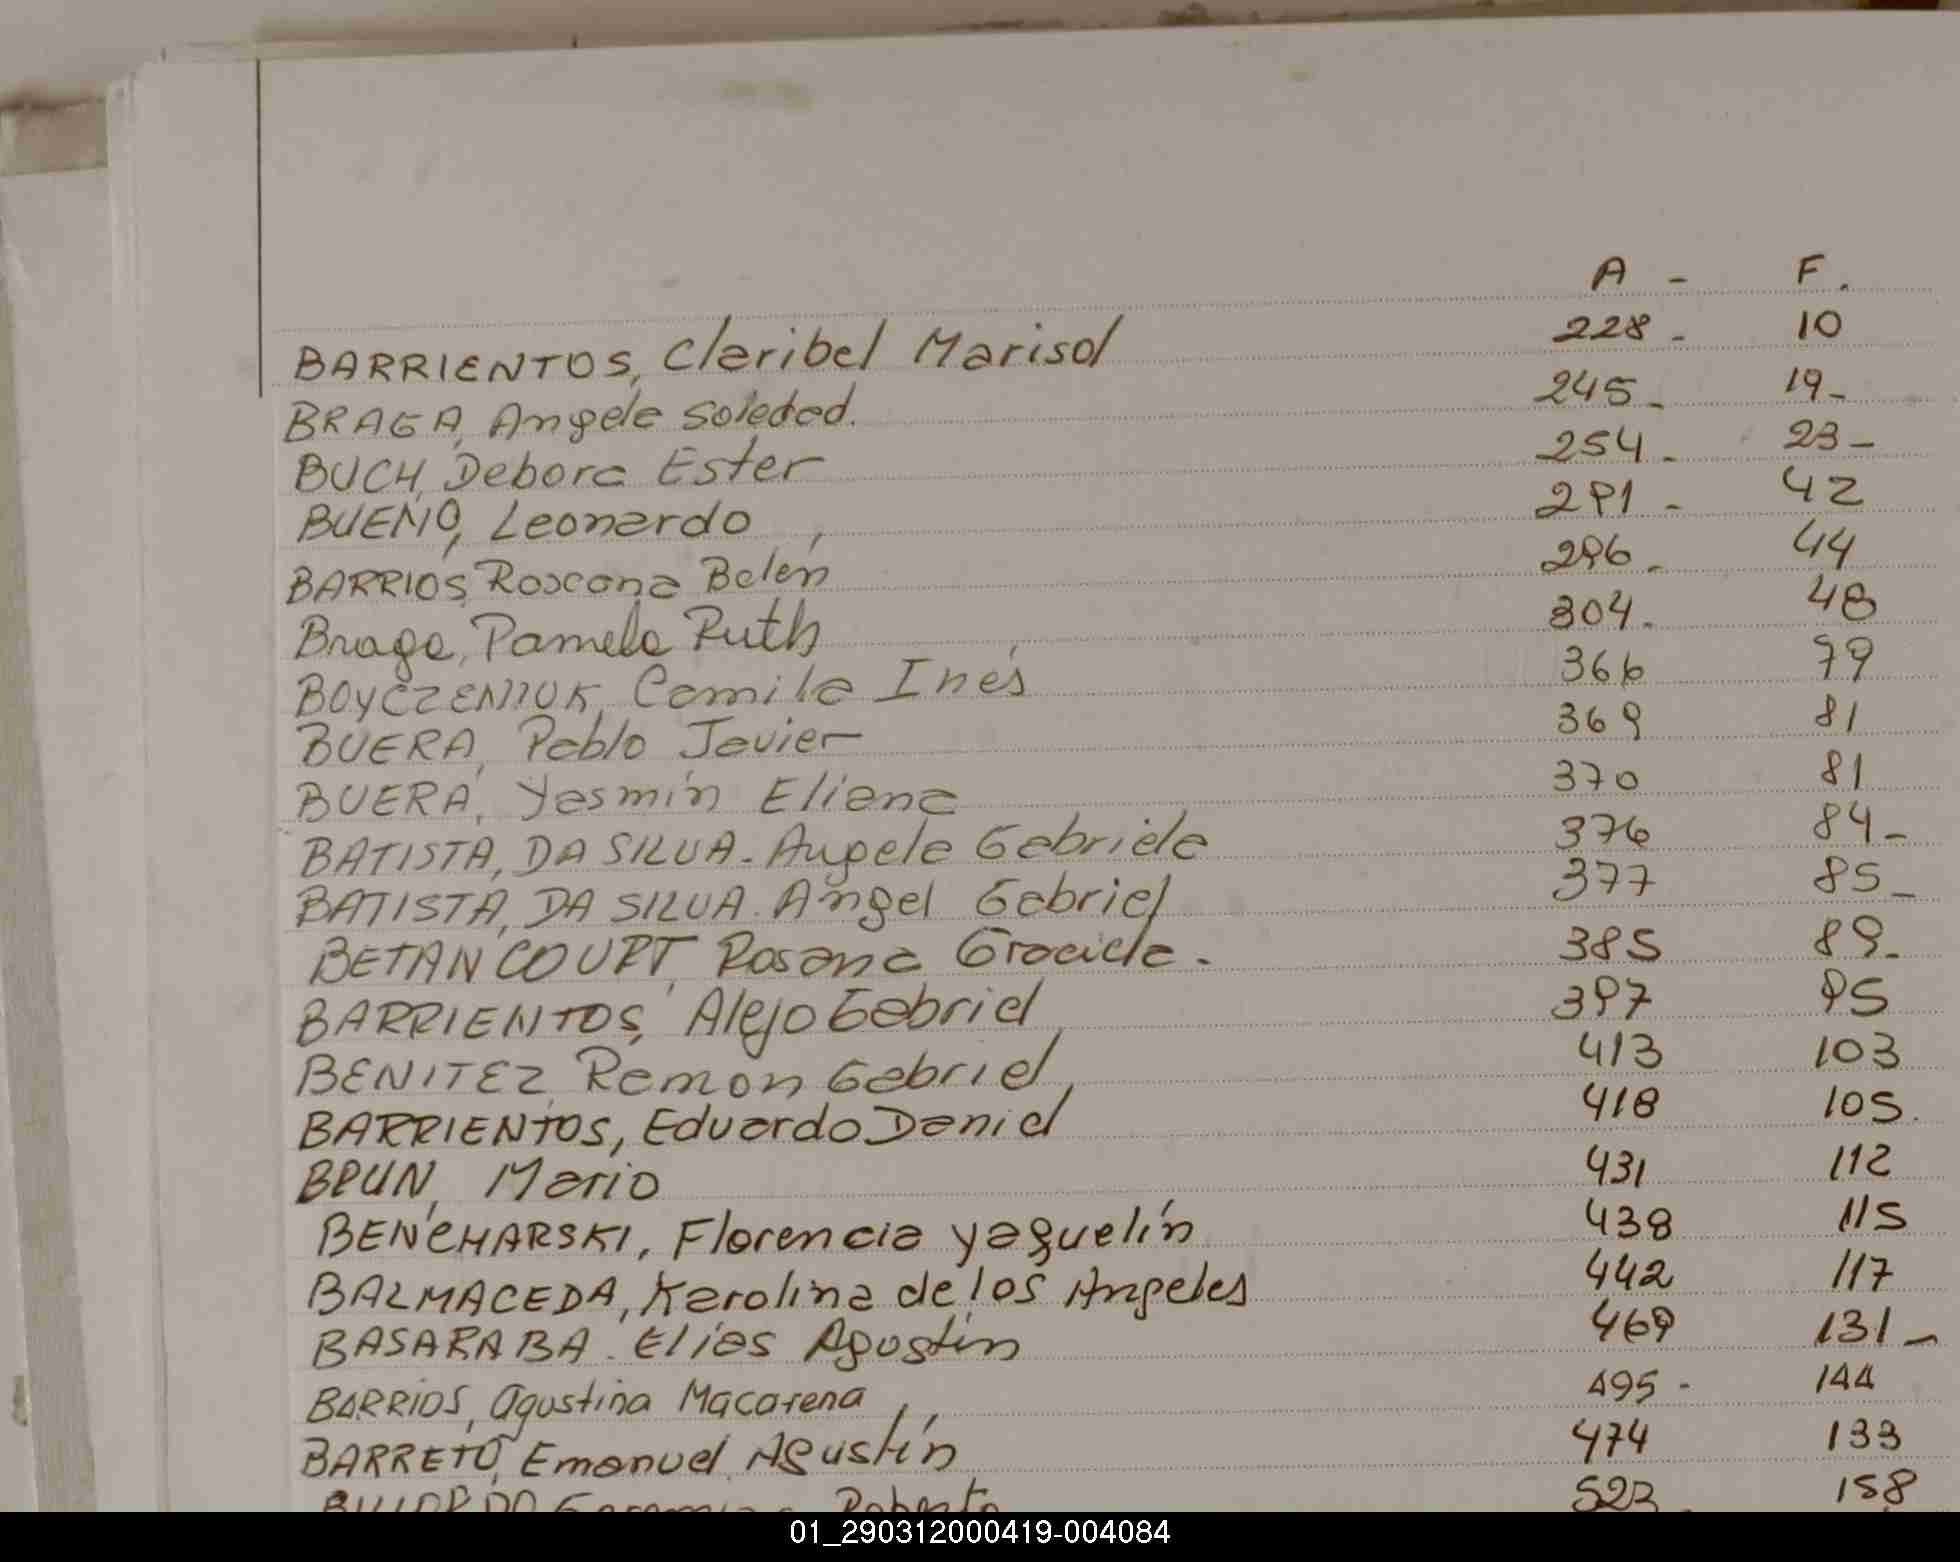 A - F.
BARRIENTOS, Claribel Marisol 228 - 10
BRAGA, Angela Soledad. 245 - 19 -
BUCH, Debora Ester 254 - 23 -
BUENO, Leonardo 291 - 42
BARRIOS, Roxcana Belén 296 - 44
Braga, Pamela Ruth 304 - 48
BOYCZENIUK, Camila Inés 366 79
BUERA, Pablo Javier 369 81
BUERA, Yasmín Eliana 370 81
BATISTA, DA SILVA - Angela Gabriela 376 84 -
BATISTA, DA SILVA. Angel Gabriel 377 85 -
BETANCOURT, Rosana Graciela - 385 89 -
BARRIENTOS, Alejo Gabriel 397 95
BENITEZ, Ramon Gabriel 413 103
BARRIENTOS, Eduardo Daniel 418 105.
BRUN, Mario 431 112
BENCHARSKI, Florencia yaquelín 438 115
BALMACEDA, Karolina de los Angeles 442 117
BASARABA - Elias Agustín 469 131 -
BARRIOS, Agustina Macarena 495 - 144
BARRETO, Emanuel Agustín 474 133
Roberto 523 - 158
01_290312000419-004084